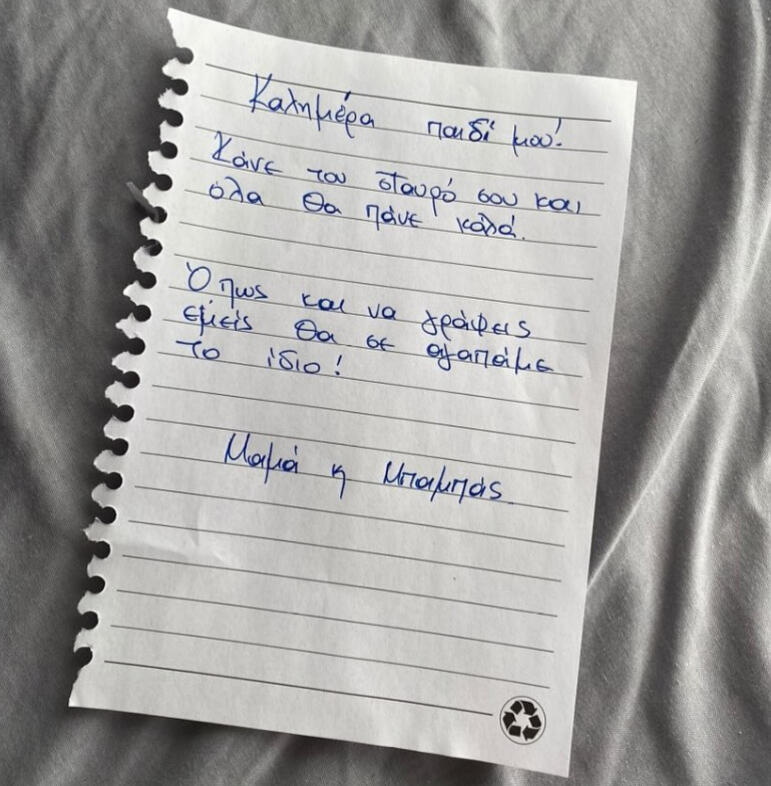 Καλημέρα παιδί μου!
Κάνε τον σταυρό σου και
όλα θα πάνε καλά.
Όπως και να γράψεις
εμείς θα σε αγαπάμε
το ίδιο!
Μαμά κ Μπαμπάς